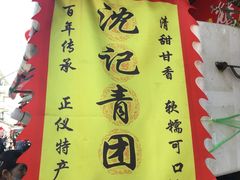 清甜甘香 软糯可口
沈记青团
百年传承 正仪特产